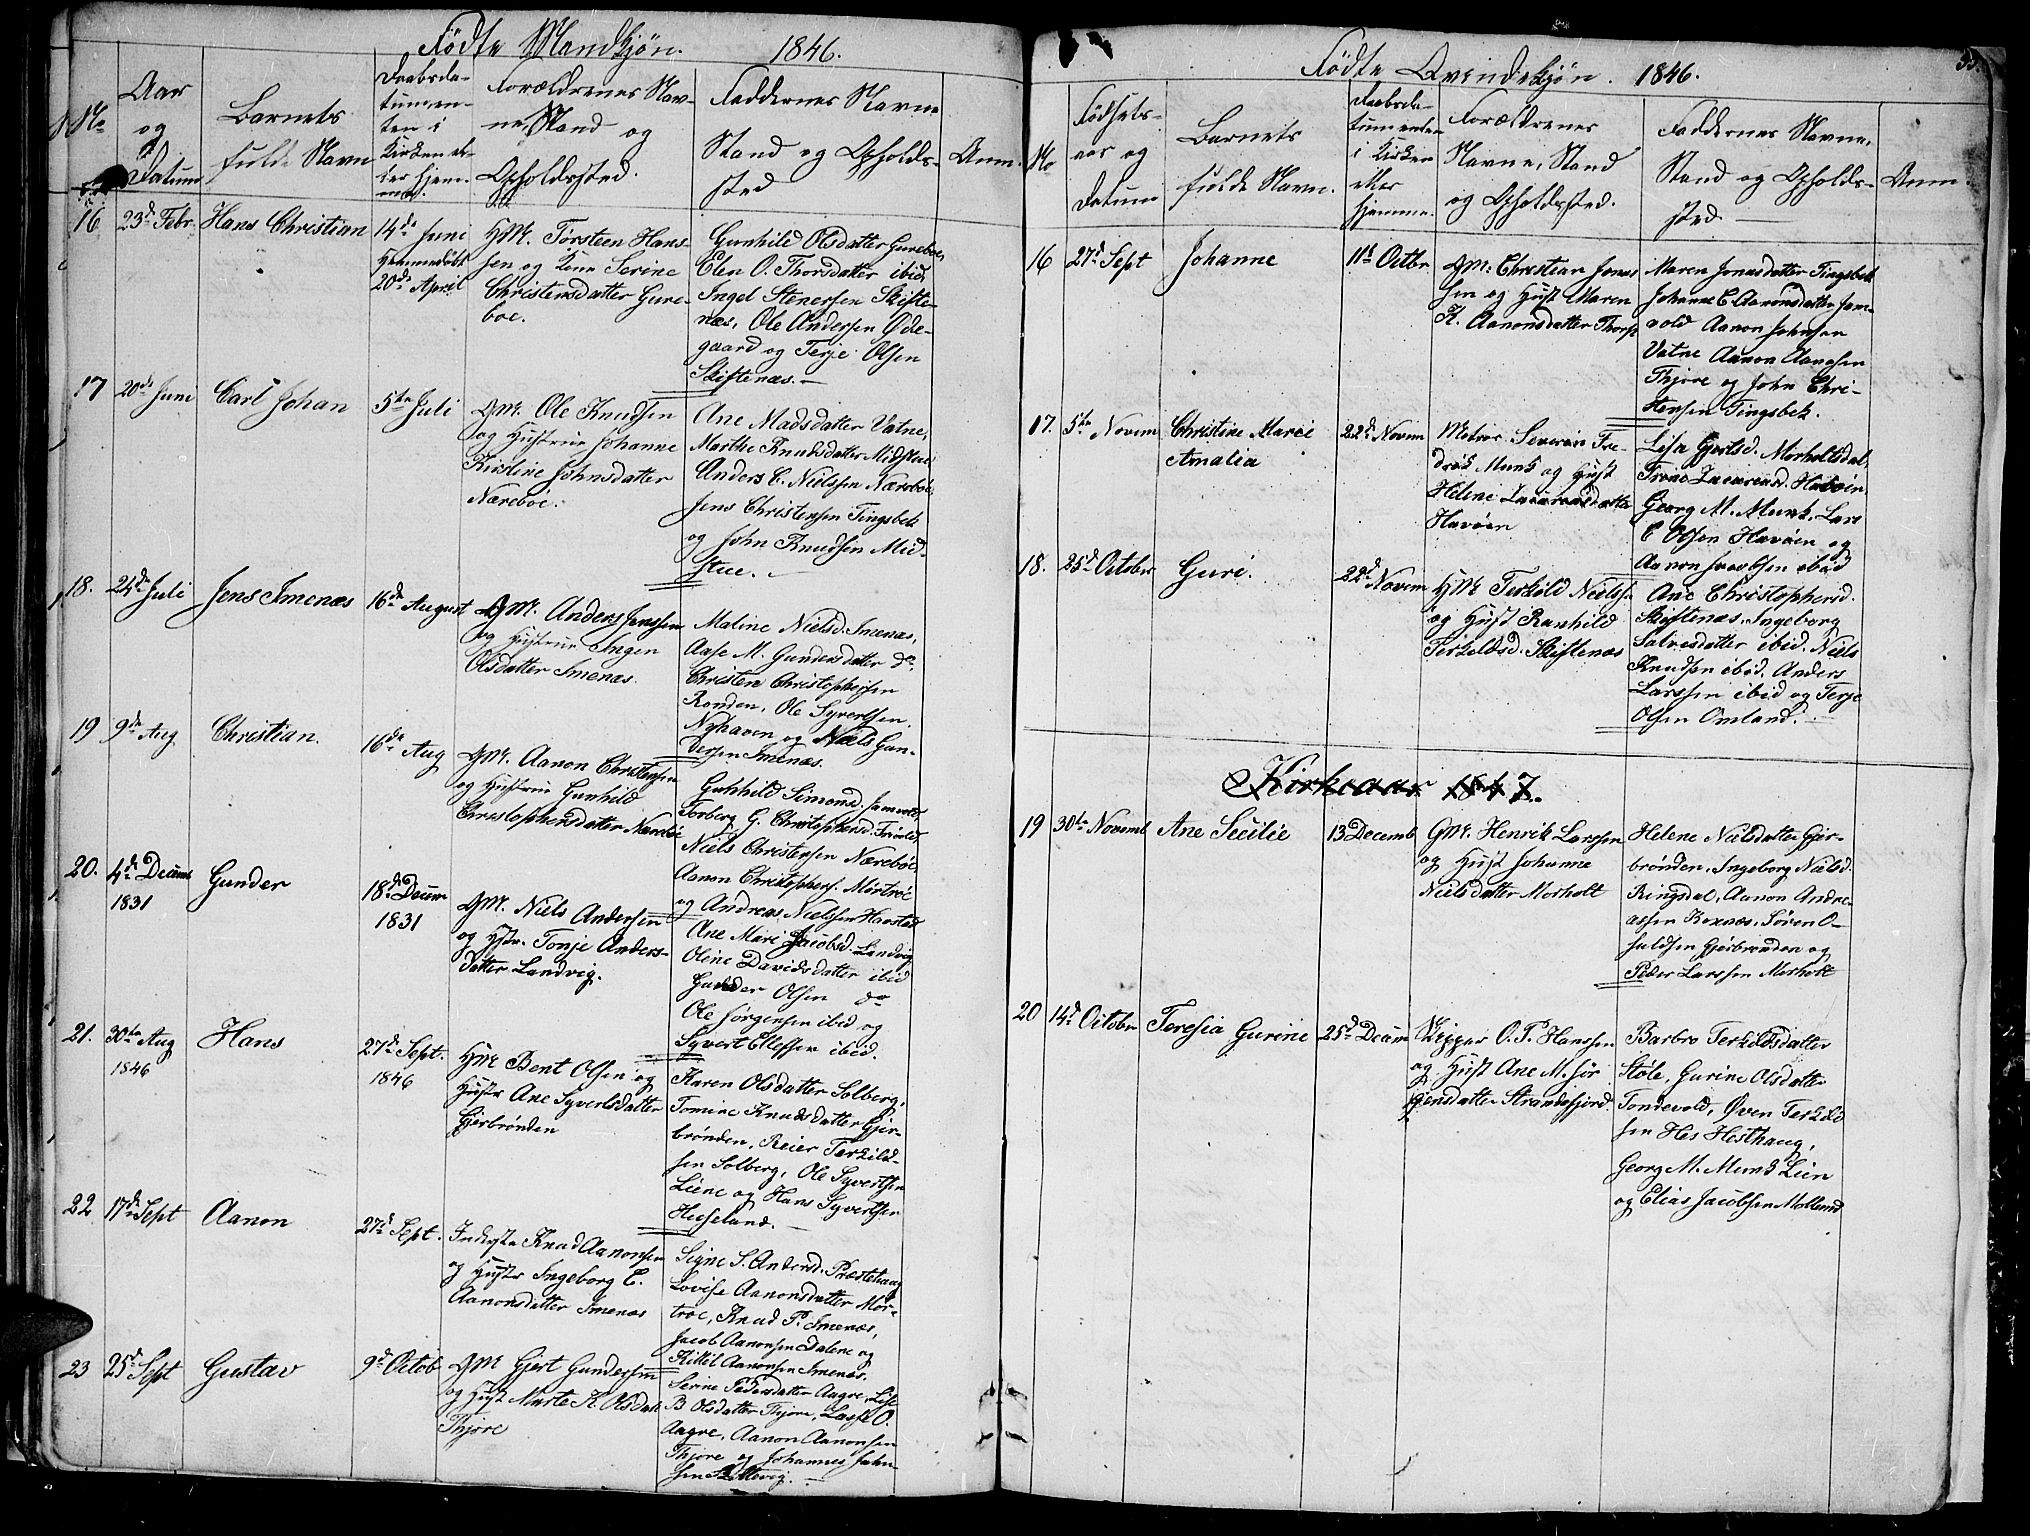 Fødte Mandkjøn. 1846.
No
Aar
og
Datum
Barnets
fulde Navn
Daabsda-
tumen-
ten i
Kirken el-
ler hjem-
me.
Forældrenes Nav-
ne, Stand og
Opholdssted.
Faddernes Navne
Stand og Opholds-
sted
Anm.
16
23d Febr.
Hans Christian
14de Juni
Hjemmedøbt
20de April
GM. Torsteen Hans-
sen og Kone Serine
Christensdatter Gure-
boe.
Gunhild Olsdatter Gureboe,
Elen O. Thorsdatter ibid,
Ingel Stenersen Skifte-
næs, Ole Andersen Øde-
gaard og Terje Olsen
Skiftenæs.
17
20de Juni
Carl Johan
5te Juli
GM. Ole Knudsen
og Hustrue Johanne
Kirstine Johnsdatter
Nærebøe.
Ane Madsdatter Vatne,
Marthe Knudsdatter Midstue
Anders C. Nielsen Nærebøe,
Jens Christensen Tingsbek
og John Knudsen Mid-
stue.
18.
24de Juli
Jens Imenæs
16de August
GM. Anders Jenssen
og Hustrue Ingen
Olsdatter Imenæs.
Maline Nielsd. Imenæs,
Aase M. Gundersdatter do.
Christen Christophersen
Ronden, Ole Syvertsen
Nyhaven og Niels Gun-
dersen Imenæs.
19
9de Aug
Christian.
16de Aug
GM. Aanon Christensen
og Hustrue Gunhild
Christophersdatter Nærebøe
Gunhild Simonsd. Jomvold,
Torborg G. Christophersd. Frivold,
Niels Christensen Nærebøe,
Aanon Christophers. Mørtroe
og Andreas Nielssen Haarstad
20.
4de Decemb
1831
Gunder
18de Decem
1831
GM. Niels Andersen
og Hstr. Tonje Anders-
datter Landvig.
Ane Marie Jacobsd. Landvig
Oline Davidsdatter ibid
Gunder Olsen do
Ole Jørgensen ibid og
Syvert Ellefsen ibid.
21.
30te Aug
1846
Hans
27de Sept.
1846
HM Bent Olsen og
Hustr Ane Syvertsdatter
Gjerbrønden
Karen Olsdatter Solberg,
Tomine Knudsdatter Gjer-
brønden, Reier Terkild-
sen Solberg, Ole Syvertsen
Liene og Hans Syvertsen
Heeseland.
22
17de Sept
Aanon
27d Sept.
Inderste Knud Aanonsen
og Hustr Ingeborg E.
Aanonsdatter Imenæs
Signe S. Andersd. Præstehaug
Lovise Aanonsdatter Mør-
troe, Knud P. Imenæs,
Jacob Aanonsen Dalene og
Kittel Aanonsen Imenæs.
23
25d Sept
Gustav
9d Octob
GM Gjert Gundersen
og Hust Marte K. Olsdatt
Thjore
Serine Pedersdatter Aagre, Lise
B Olsdatter Thjore, Lasse O.
Aagre, Aanon Aanonsen
Thjore og Johannes John-
sen
Fødte Qvindekjøn. 1846.
No
Fødsels-
aar og
Datum
Barnets
fulde Navn.
Daabsda-
tumenten
i Kirken
eller
hjemme.
Forældrenes
Navne, Stand
og Opholdssted.
Faddernes Navne,
Stand og Opholds-
sted.
Anm.
16
27d Sept
Johanne
11d Octbr
GM: Christian Jens
sen og Hust Maren
K. Aanonsdatter Thorp
Maren Jonasdatter Tingsbek
Johanne C Aanonsdatter Jom-
vold Aanon Johnsen
Vatne Aanon Aanonsen
Thjore og John Chri-
stensen Tingsbek.
17.
5te Novem
Christine Marie
Amalia
22d Novem
Matros Severin Fre-
drik Munk og Hust
Helene Zacariasdatter
Havøen
Lisa Gjertsd. Morholtsdal,
Trine Zacariasd. Havøen,
Georg M. Munk, Lars
C Olsen Havøen og
Aanon Jacobsen ibid
18.
25d October
Guri.
22d Novem
HM Terkild Nielsse
og Hust Ranhild
Terkildsd. Skiftenæs
Ane Christophersd.
Skiftenæs, Ingeborg
Salvesdatter ibid. Niels
Knudsen ibid. Anders
Larssen ibid og Terje
Olsen Omland.
Kirkeaar 1847.
19
30te Novemb
Ane Secilie
13 Decemb
GM. Henrik Larssen
og Hust Johanne
Nielsdatter Morholt
Helene Nielsdatter Gjer-
brønden, Ingeborg Nielsd.
Ringdal, Aanon Andre-
assen Roxnæs, Søren O-
huldsen Gjerbrønden og
Peder Larssen Morholt
20
14d October
Teresia Gurine
25d Decem
Skipper O. P. Hanssen
og Hust Ane M. Jør
gensdatter Strandefjord.
Barbro Terkildsdatter
Støle, Gurine Olsdatter
Tondevold, Øven Terkild
sen Hes Hesthaug,
Georg M. Munk Lien
og Elias Jacobsen Molland